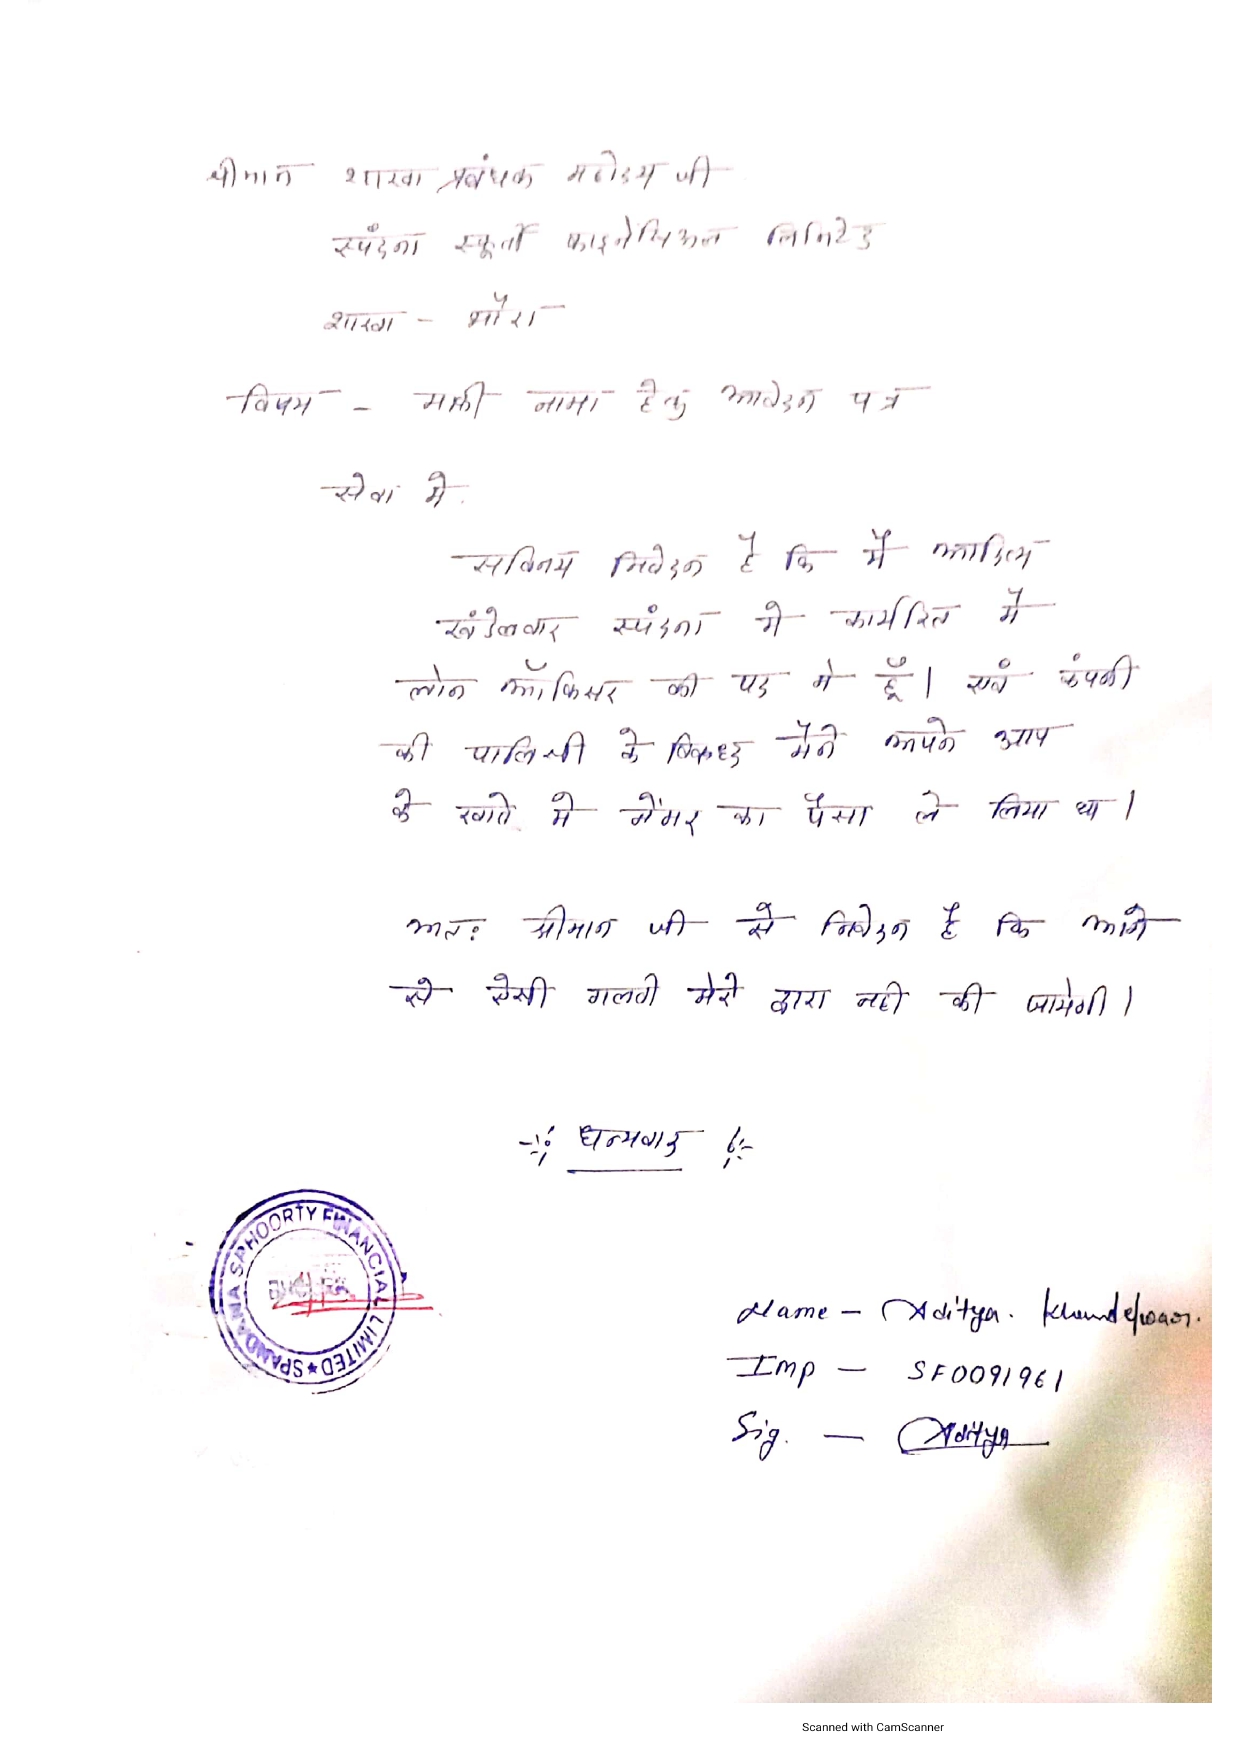 श्रीमान शाखा प्रबंधक महोदय जी
स्पंदना स्फूर्ती फाइनेंसिअल लिमिटेड
शाखा - भौंरा
विषय - माफी नामा हेतु आवेदन पत्र
सेवा में.
सविनय निवेदन है कि मैं आदित्य
खंडेलवार स्पंदना में कार्यरित में
लोन ऑफिसर की पद मे हूँ। एवं कंपनी
की पालिसी के विरूध्द मैंने अपने आप
के खाते में मेंमर का पैसा ले लिया था।
अतः श्रीमान जी से निवेदन है कि आगे
से ऐसी गलती मेरे द्वारा नही की जायेगी।
धन्यवाद
SPANDANA SPHOORTY FINANCIAL LIMITED
Name - Aditya. Khandelwar.
Imp - SF0091961
Sig. - Aditya
Scanned with CamScanner